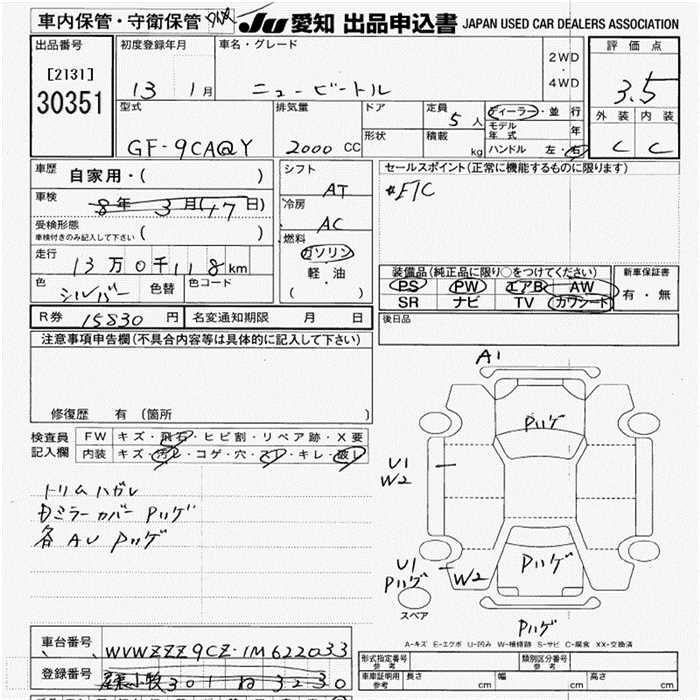 車内保管・守衛保管 JU 愛知 出品申込書 JAPAN USED CAR DEALERS ASSOCIATION
出品番号 初度登録年月 車名・グレード 2WD・4WD 評価点
[2131] 13 1月 ニュービートル 3.5
30351 型式 排気量 ドア 定員 5人 ディーラー・並行 外装 内装
モデル年式 年
GF-9CAQY 2000 CC 形状 積載 kg ハンドル 左・右 C C
車歴 自家用・( ) シフト AT セールスポイント(正常に機能するものに限ります)
車検 8年 3月(17日) 冷房 AC #ETC
受検形態 車検付きのみ記入して下さい ( ) 燃料
走行 13万0千118km ガソリン 装備品(純正品に限り○をつけてください) 新車保証書
色 シルバー 色替 色コード 軽・油 PS PW エアB AW 有・無
( ) SR ナビ TV カワシート
R券 15830円 名変通知期限 月 日 後日品
注意事項申告欄(不具合内容等は具体的に記入して下さい)
修復歴 有(箇所 )
検査員記入欄 FW キズ・飛石・ヒビ割・リペア跡・X要
内装 キズ・汚レ・コゲ・穴・スレ・キレ・破レ
トリムハガレ
Dミラーカバー Pハゲ
各AU Pハゲ
A1
Pハゲ
U1
W2
U1
Pハゲ
W2
Pハゲ
スペア
Pハゲ
A-キズ E-エクボ U-凹み W-補修跡 S-サビ C-腐食 XX-交換済
車台番号 WVWZZZ9CZ-1M622033
登録番号 尾張小牧301ね3230
形式指定番号 参考 類別区分番号 参考
車庫証明用 参考 長さ cm 幅 cm 高さ cm